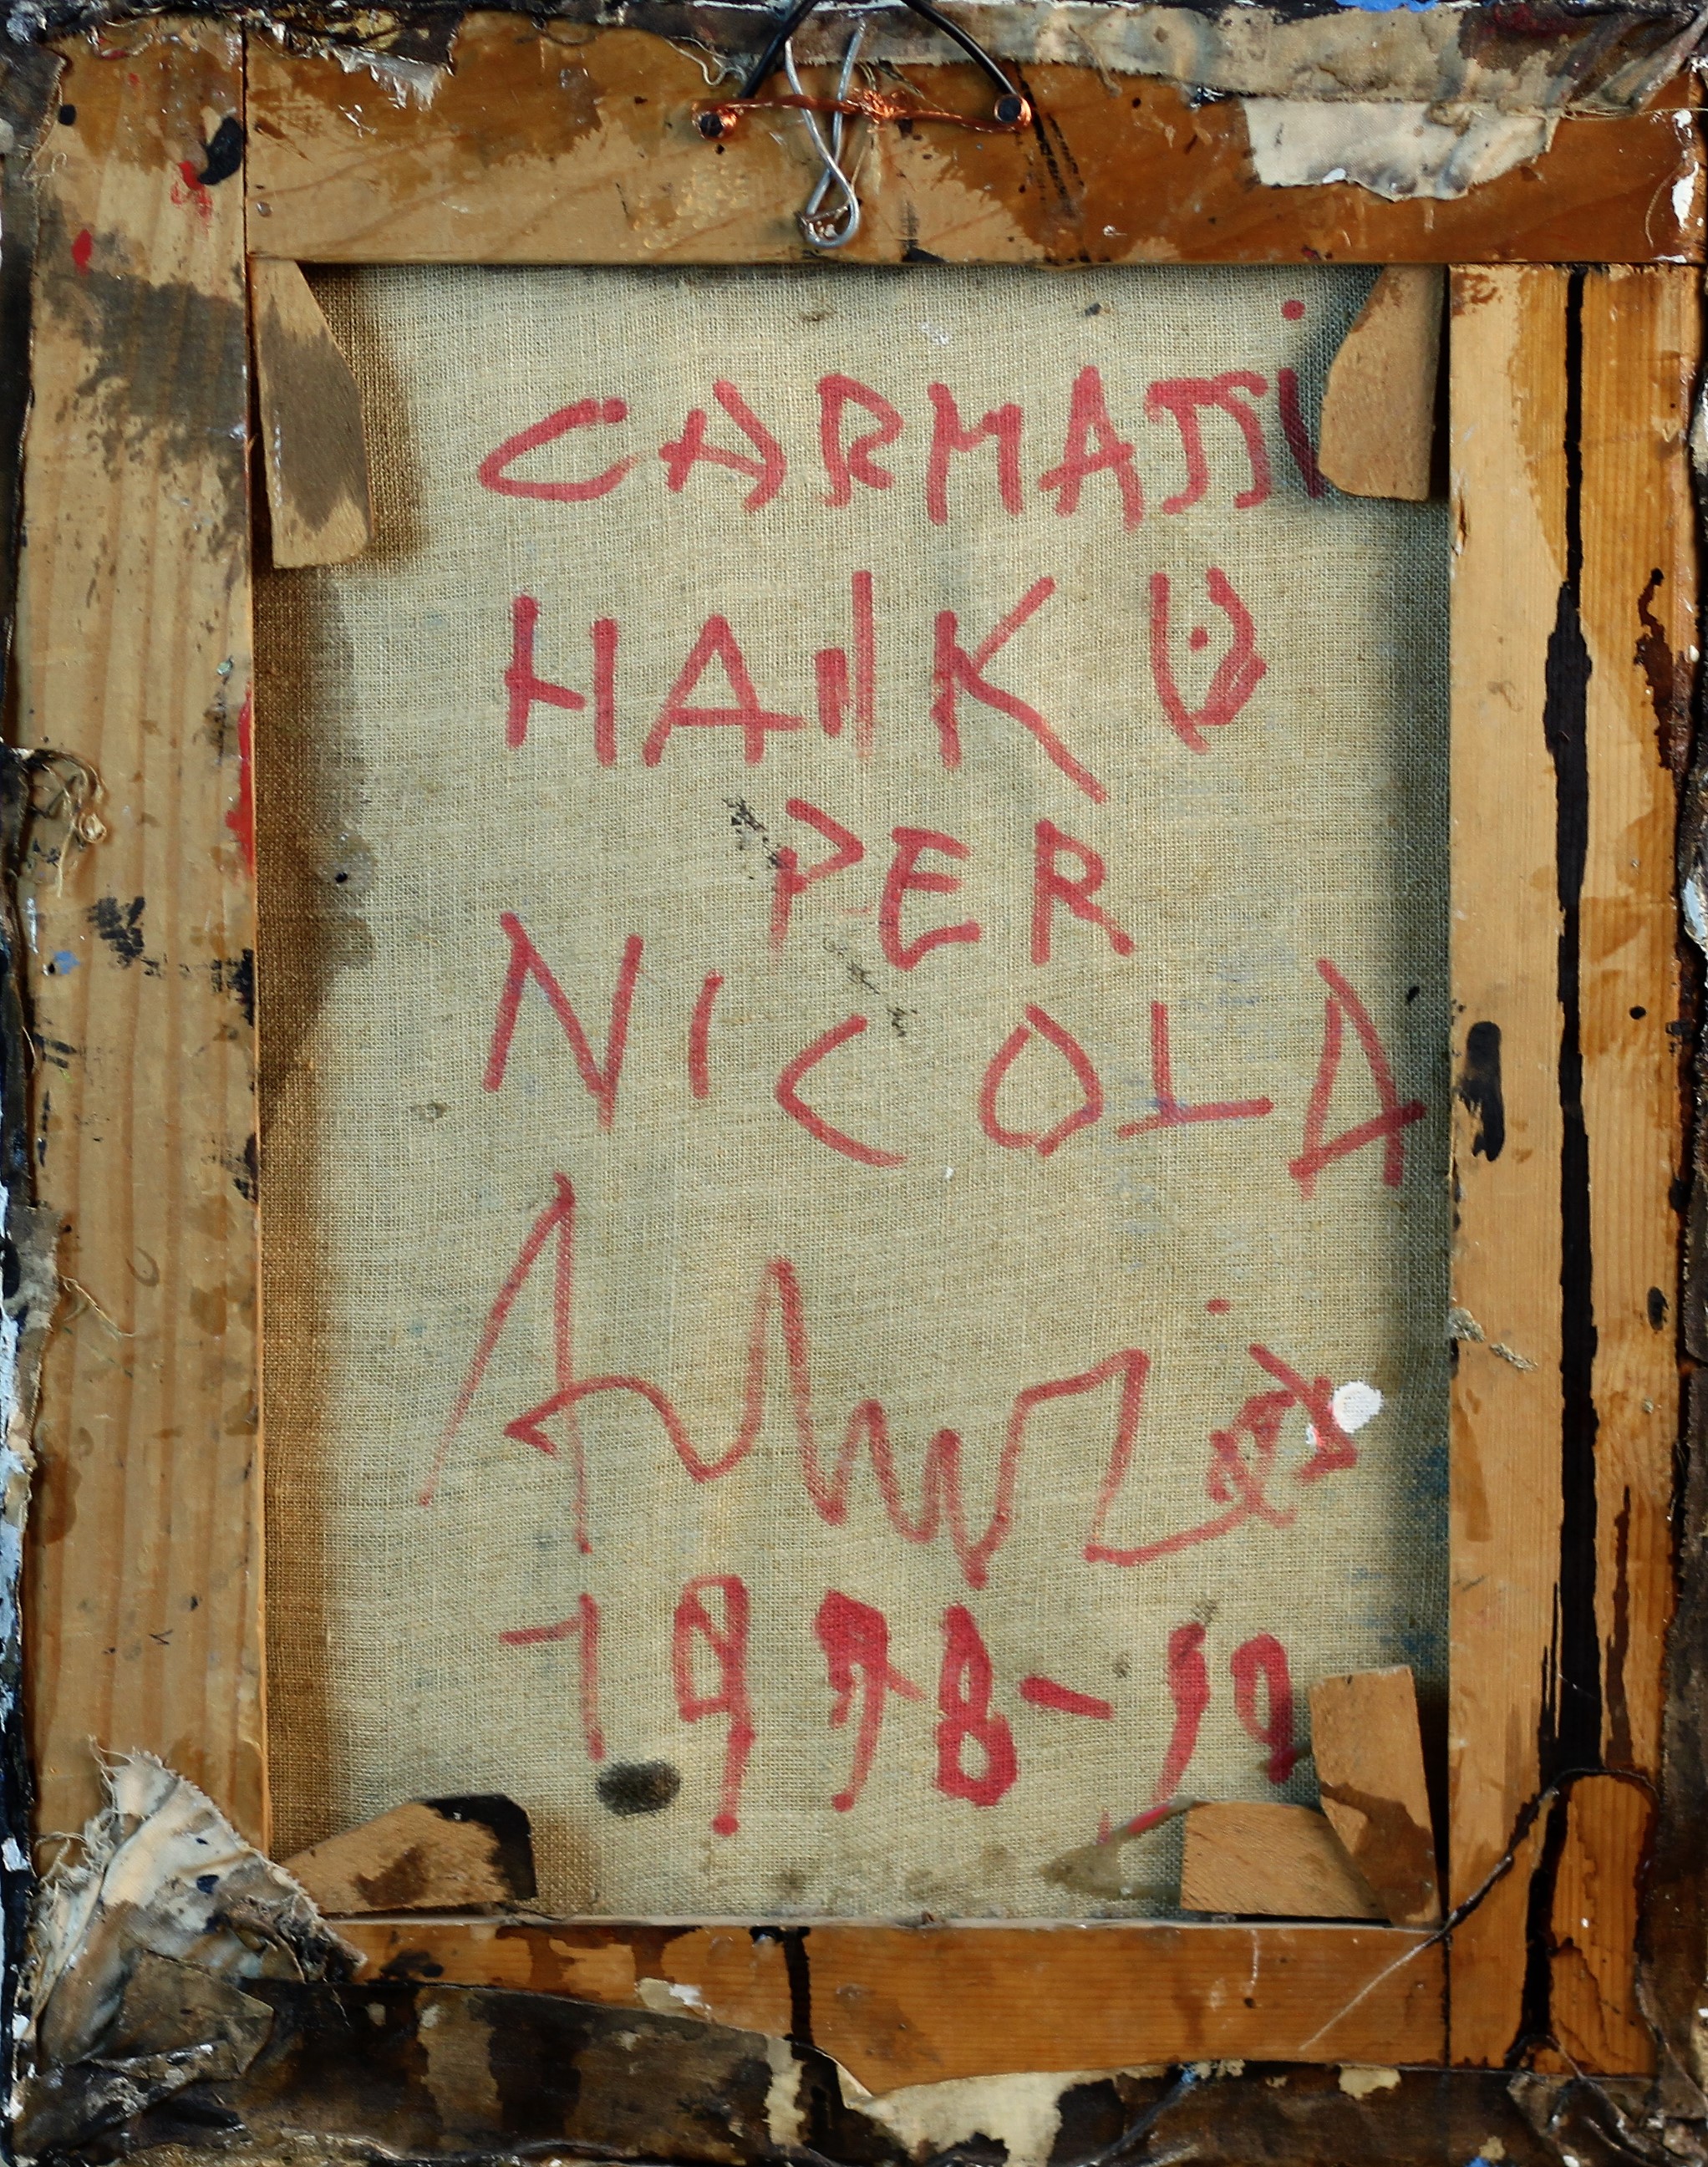 CARMASSi
HAIKU
PER
NICOLA
1998-99